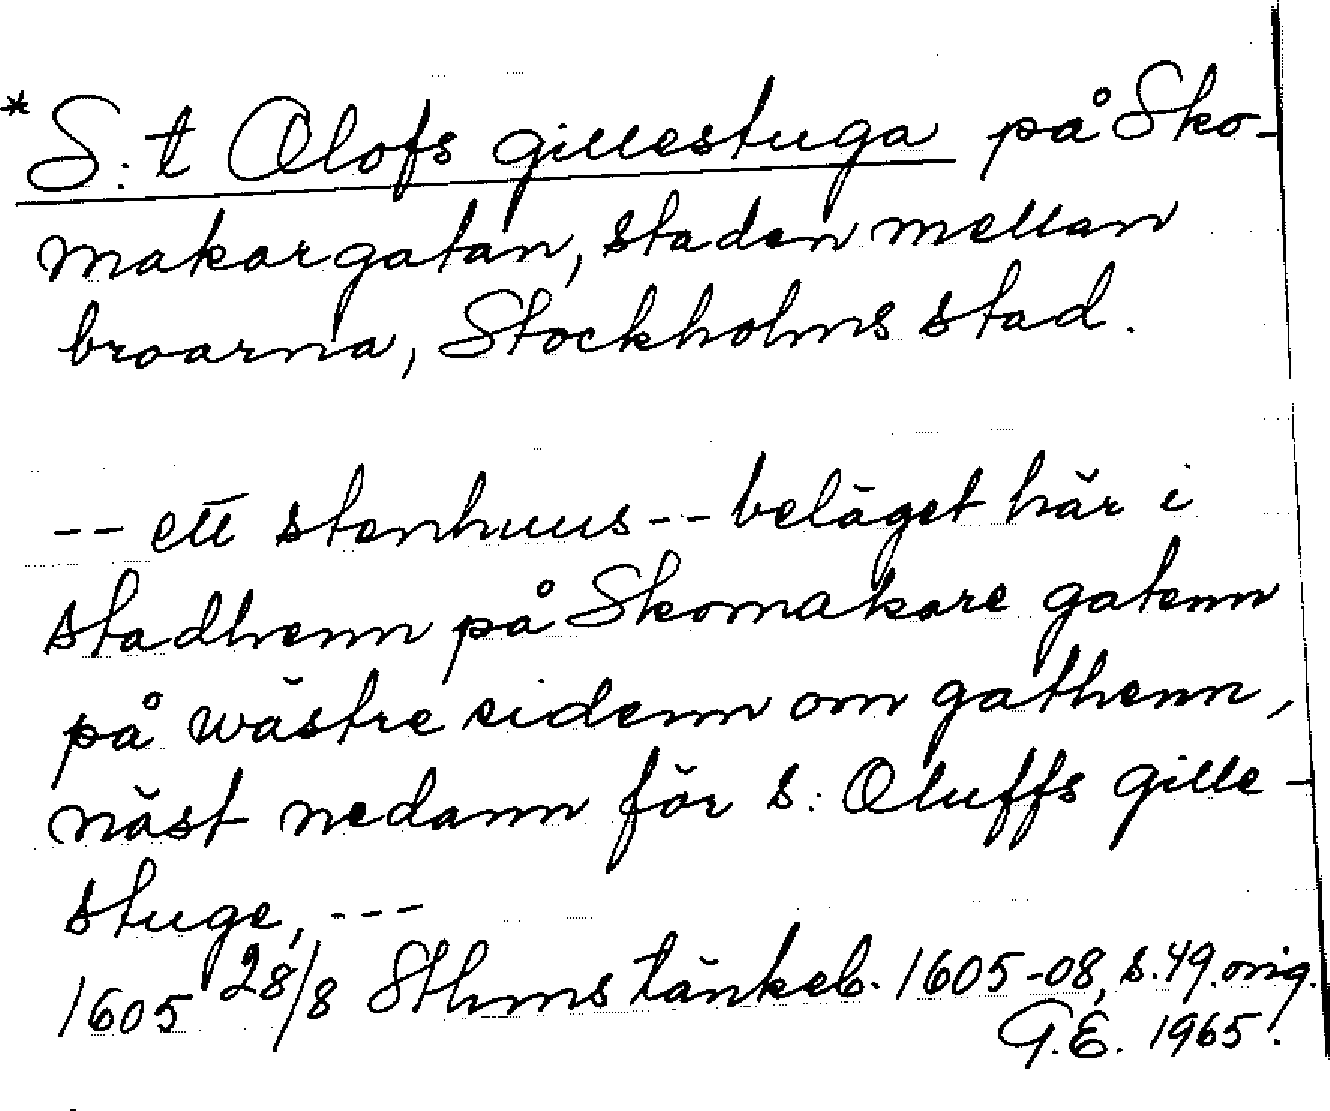 * S:t Olofs gillestuga på Sko-
makargatan, staden mellan
broarna, Stockholms stad.
-- ett stenhuus -- beläget här i
stadhenn på Skomakare gatenn
på wästre sidenn om gathenn,
näst nedann för S: Oluffs gille-
stuge, ---
1605 28/8 Sthms tänkeb. 1605-08, s. 49. orig.
G.E. 1965.